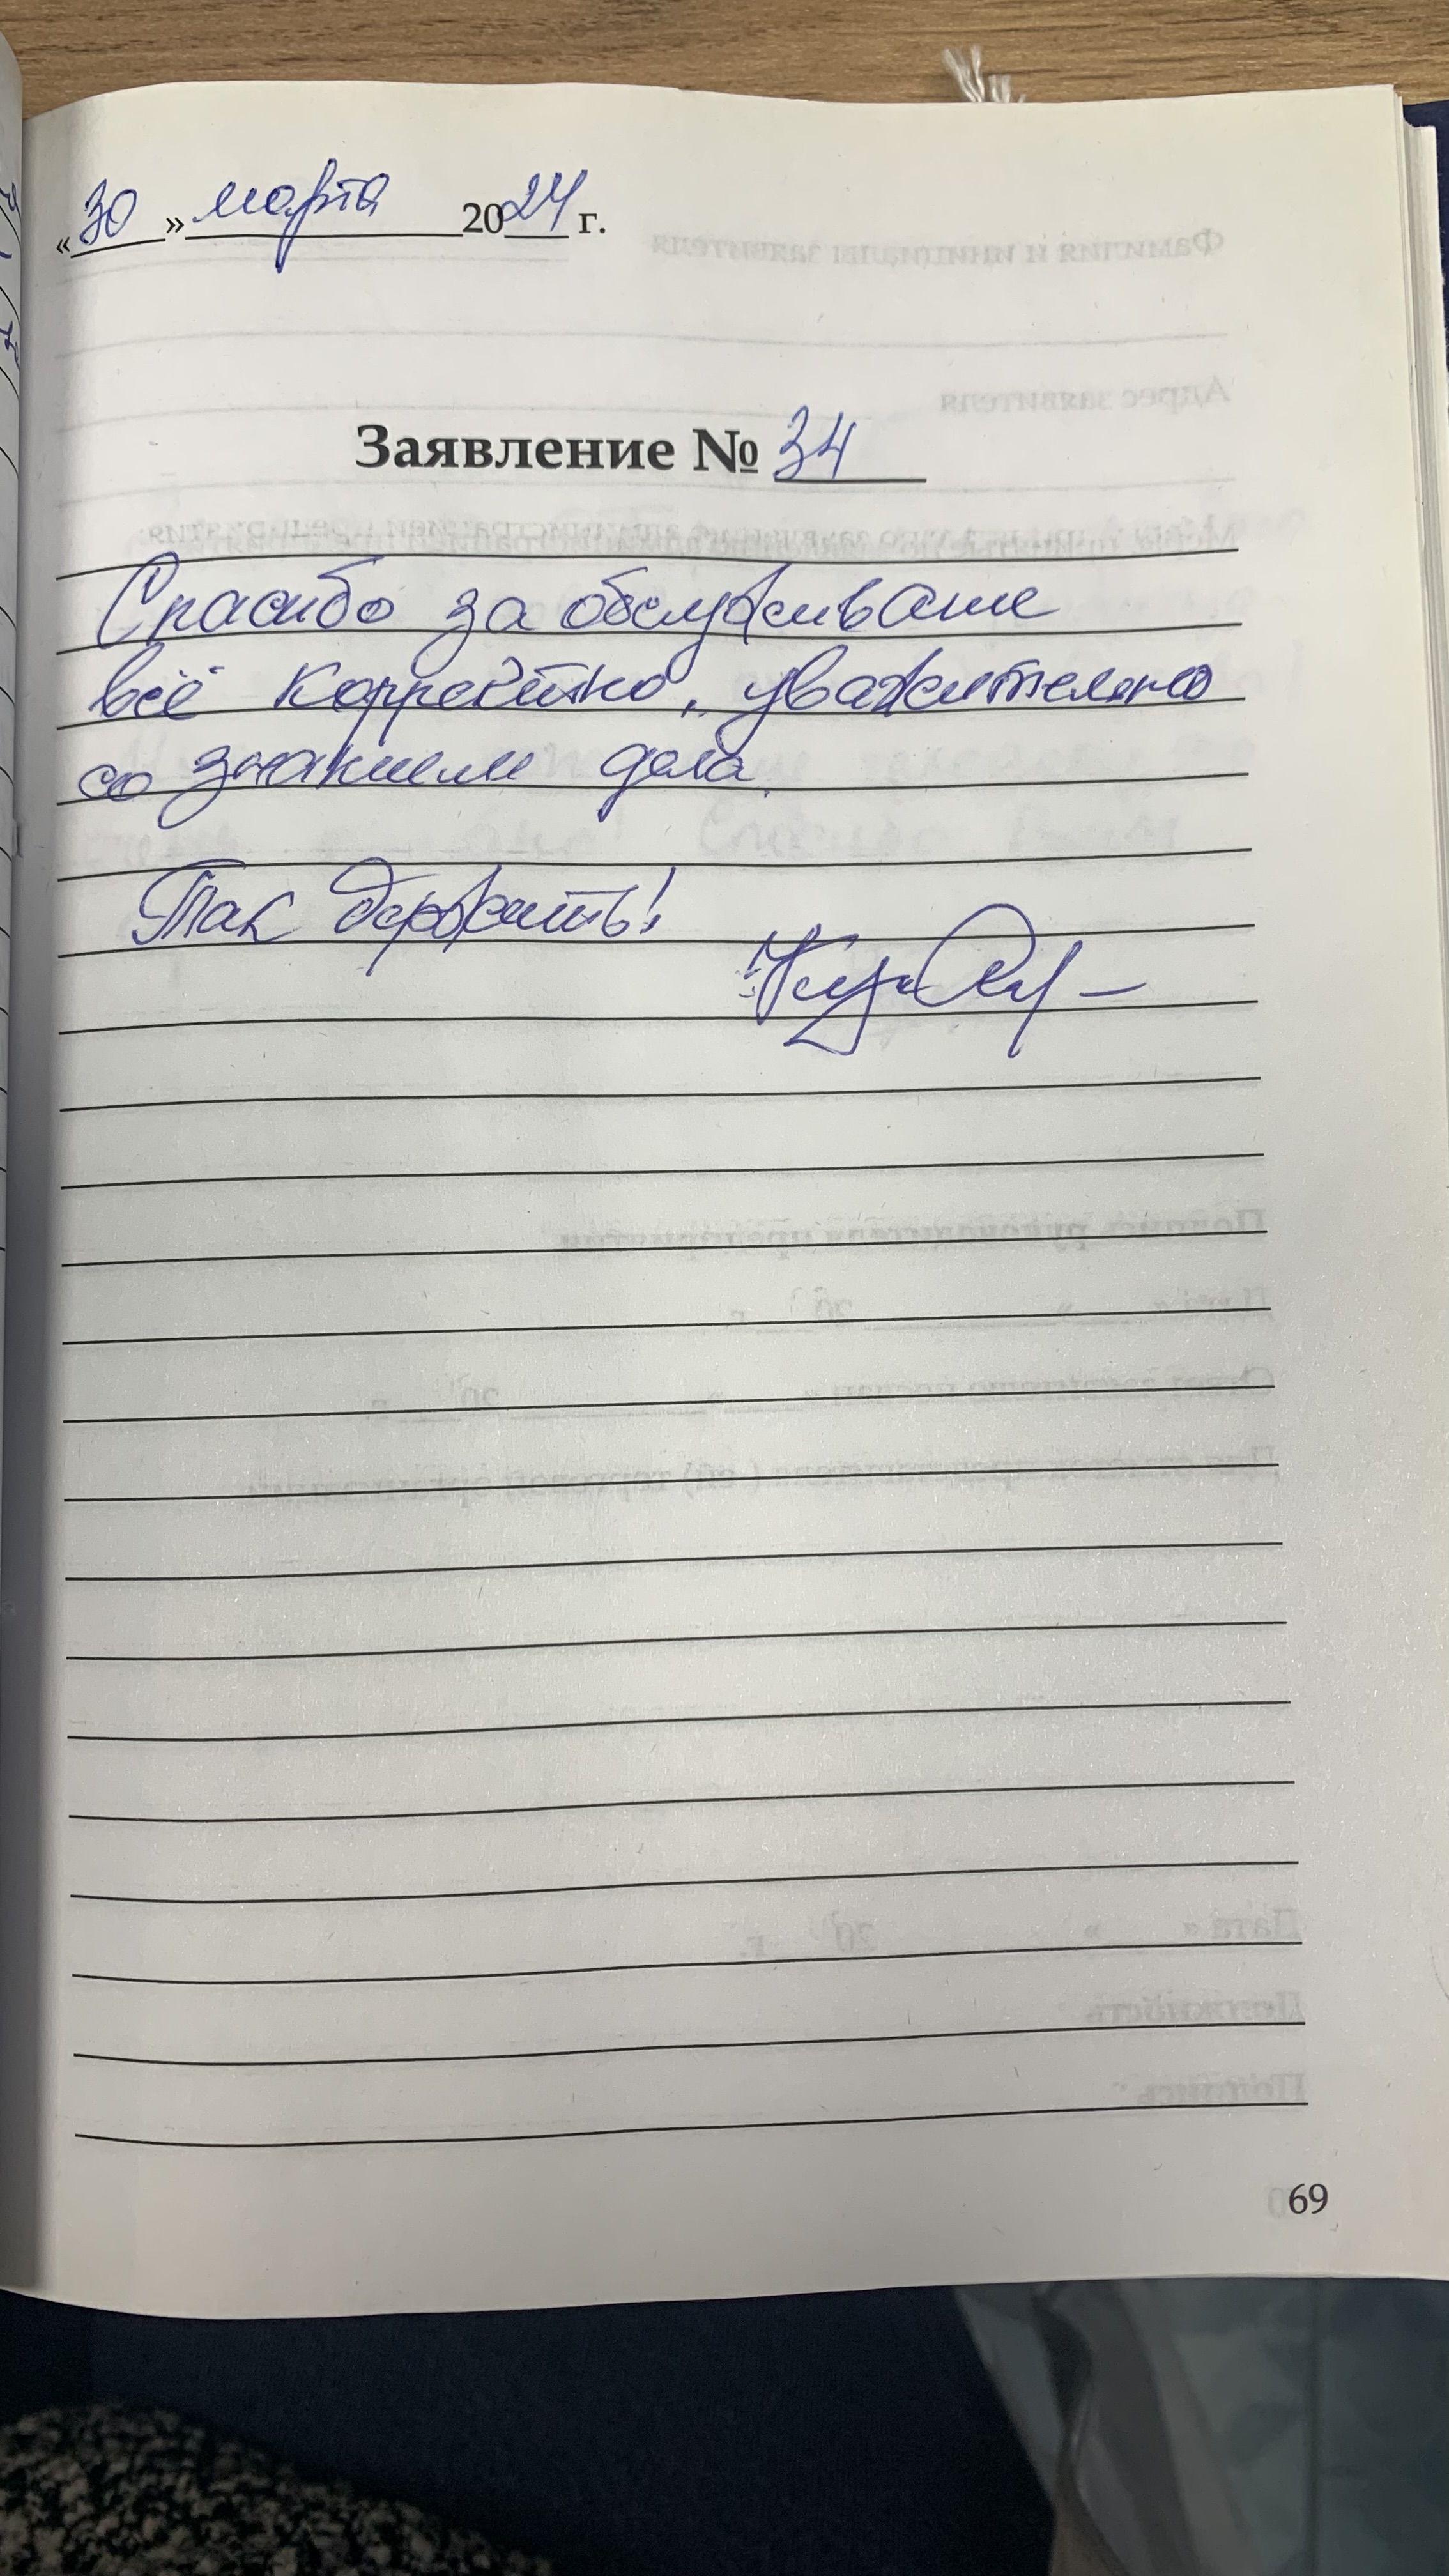 «30» марта 2024 г.
Заявление № 34
Спасибо за обслуживание
всё корректно, уважительно
со знанием дела.
Так держать!
69